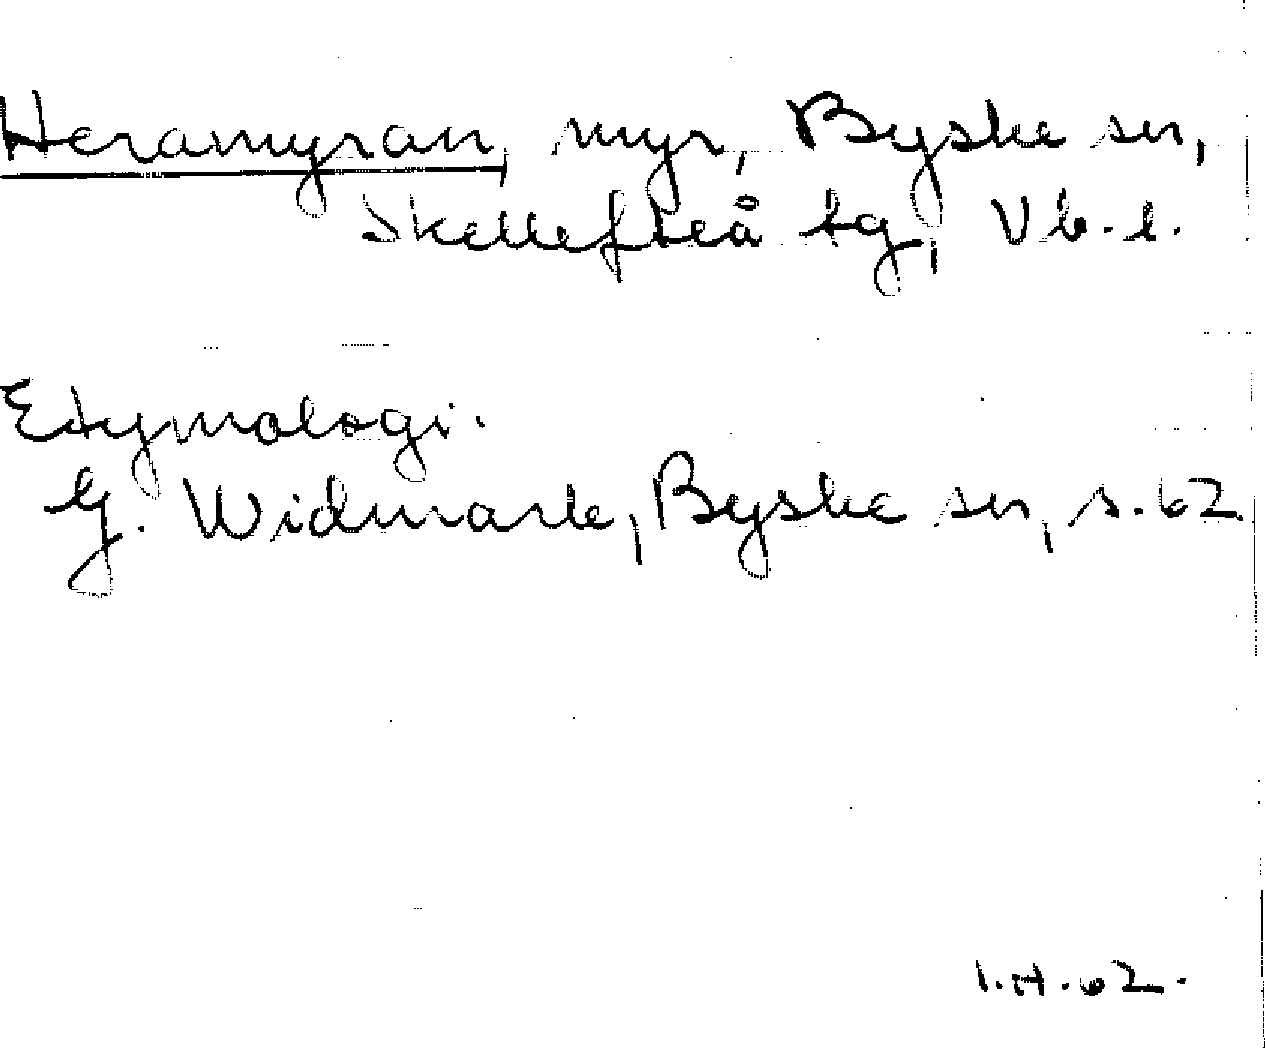 Heramyran, myr, Byske sn,
Skellefteå tg, Vb. l.
Etymologi.
G. Widmark, Byske sn, s. 62.